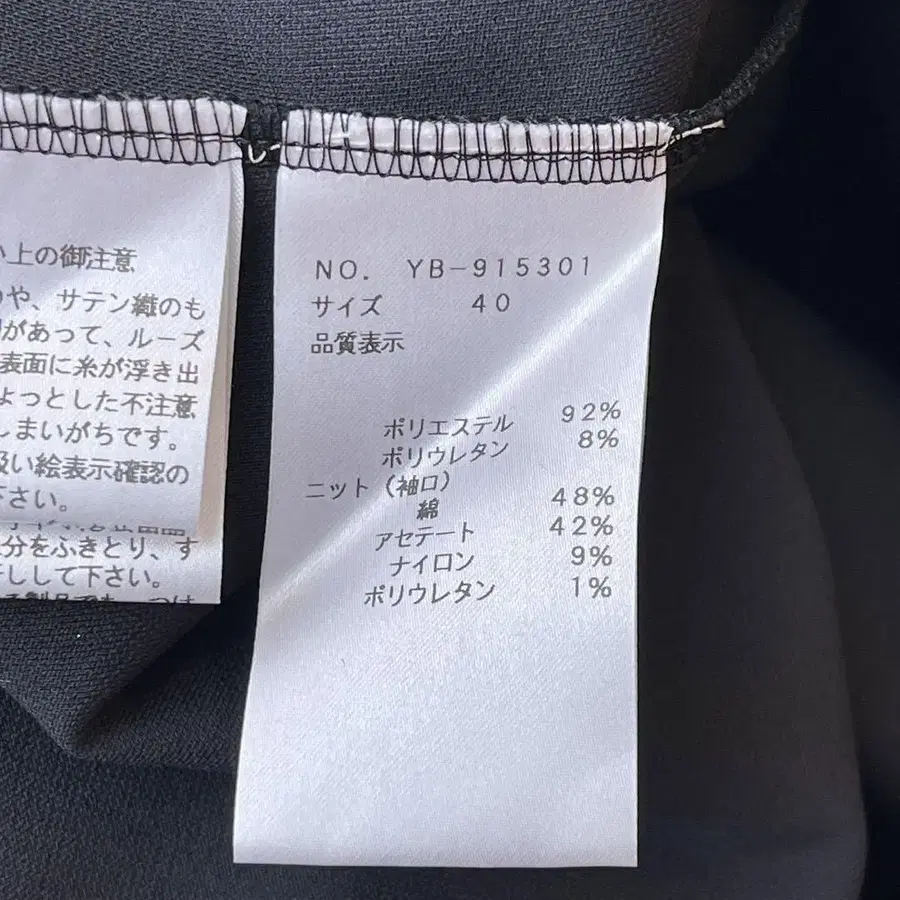 上の御注意
や、サテン織のも
があって、ルーズ
表面に糸が浮き出
ょっとした不注意
しまいがちです。
扱い絵表示確認の
下さい。
分をふきとり、す
干しして下さい。
NO. YB-915301
サイズ 40
品質表示
ポリエステル 92%
ポリウレタン 8%
ニット(袖口)
綿 48%
アセテート 42%
ナイロン 9%
ポリウレタン 1%